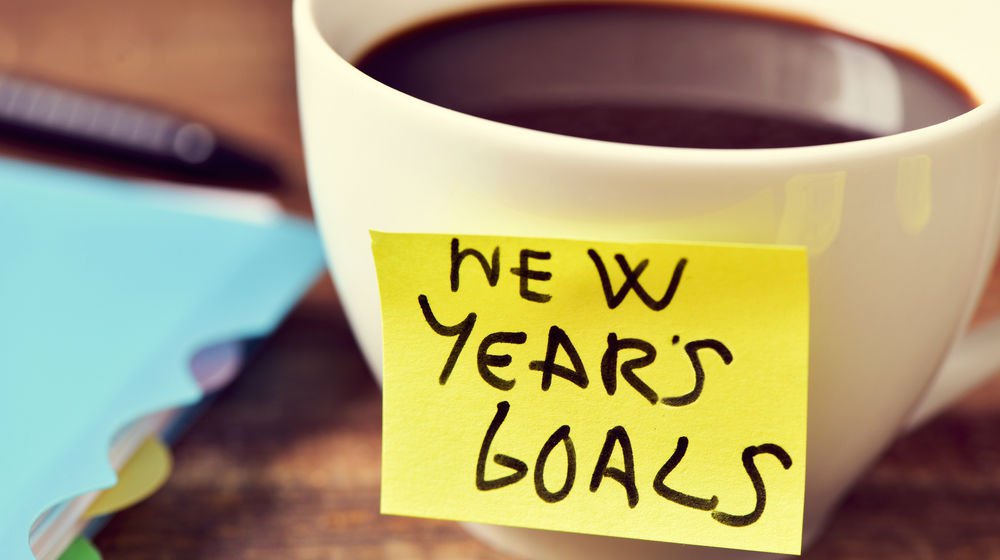 NEW
YEAR'S
GOALS